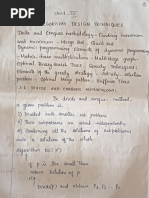 Unit - III
ALGORITHM DESIGN TECHNIQUES
Divide and Conquer methodology - Finding maximum
and minimum - Merge sort - Quick sort
Dynamic programming: Elements of dynamic programming
- Matrix-chain multiplication - Multi stage graph -
Optimal Binary Search Trees. Greedy Technique:
Elements of the greedy strategy - Activity - selection
problem - Optimal merge pattern - Huffman Trees
3.1 DIVIDE AND CONQUER METHODOLOGY:
In divide and conquer method,
a given problem is,
1) Divided into smaller sub problems
2) These subproblems are solved independently.
3) Combining all the solutions of sub
problems into a solution of the whole.
Algorithm DC(P)
{
if P is too small then
return solution of P
else
{
Divide (P) and obtain P1, P2, ... Pn